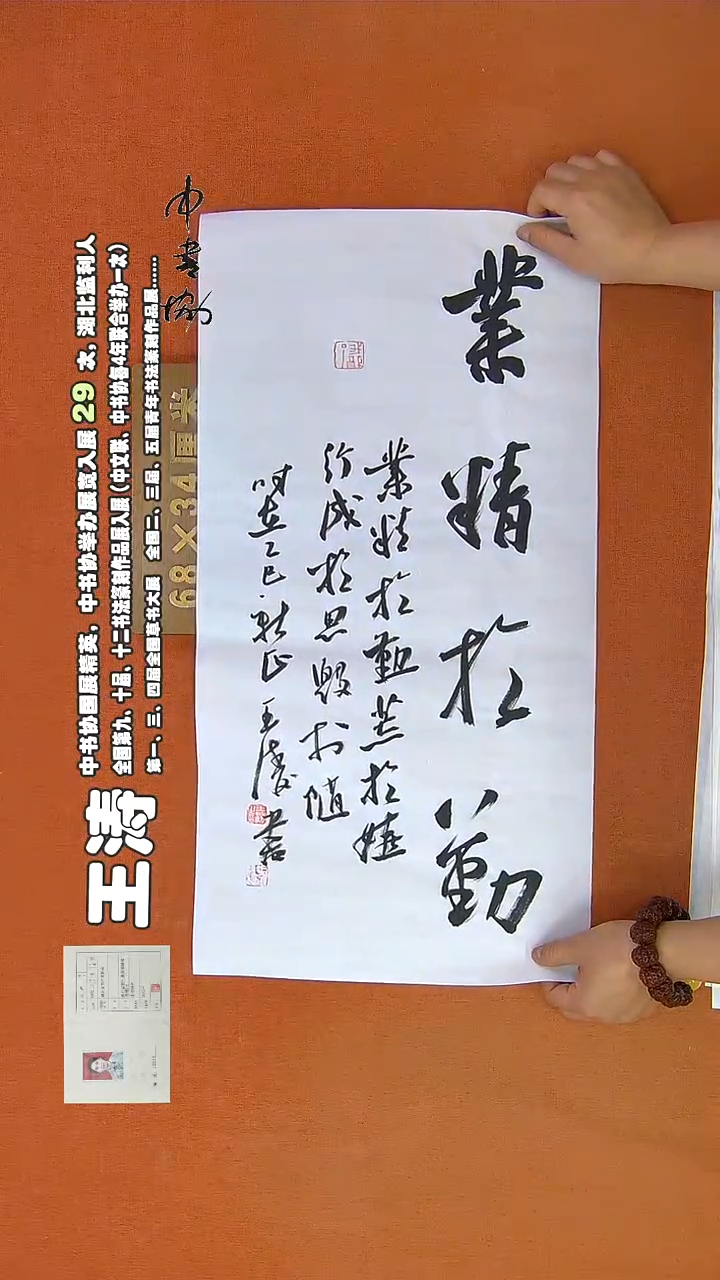 業精於勤
業精於勤荒於嬉
行成於思毀於随
时在乙巳新正王涛书
中书协
中书协国展精英，中书协举办展览入展29次，湖北监利人
全国第九、十届、十二书法篆刻作品展入展（中文联、中书协每4年联合举办一次）
第一、三、四届全国草书大展 全国二、三届、五届青年书法篆刻作品展……
王涛
68×34厘米